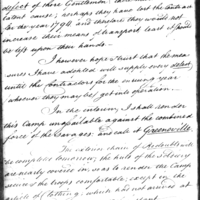 defect of those Gentlemen,
latent cause; perhaps they have lost the contract
for the year 1794 and therefore they would not
increase their means of transport least it should
be left upon their hands.
I however hope & trust that the mea-
sures I have adopted will supply our defect,
until the contractors for the ensuing year
whoever they may be get into operation.
In the interim, I shall render
this Camp unassailable against the combined
force of the Savages and call it Greeneville.
The extra chain of Redoubts will
be completed tomorrow, the huts of the Soldiery
are nearly covered in, so as to render the Camp
secure & the troops comfortable, except in the
article of clothing, which has not arrived at